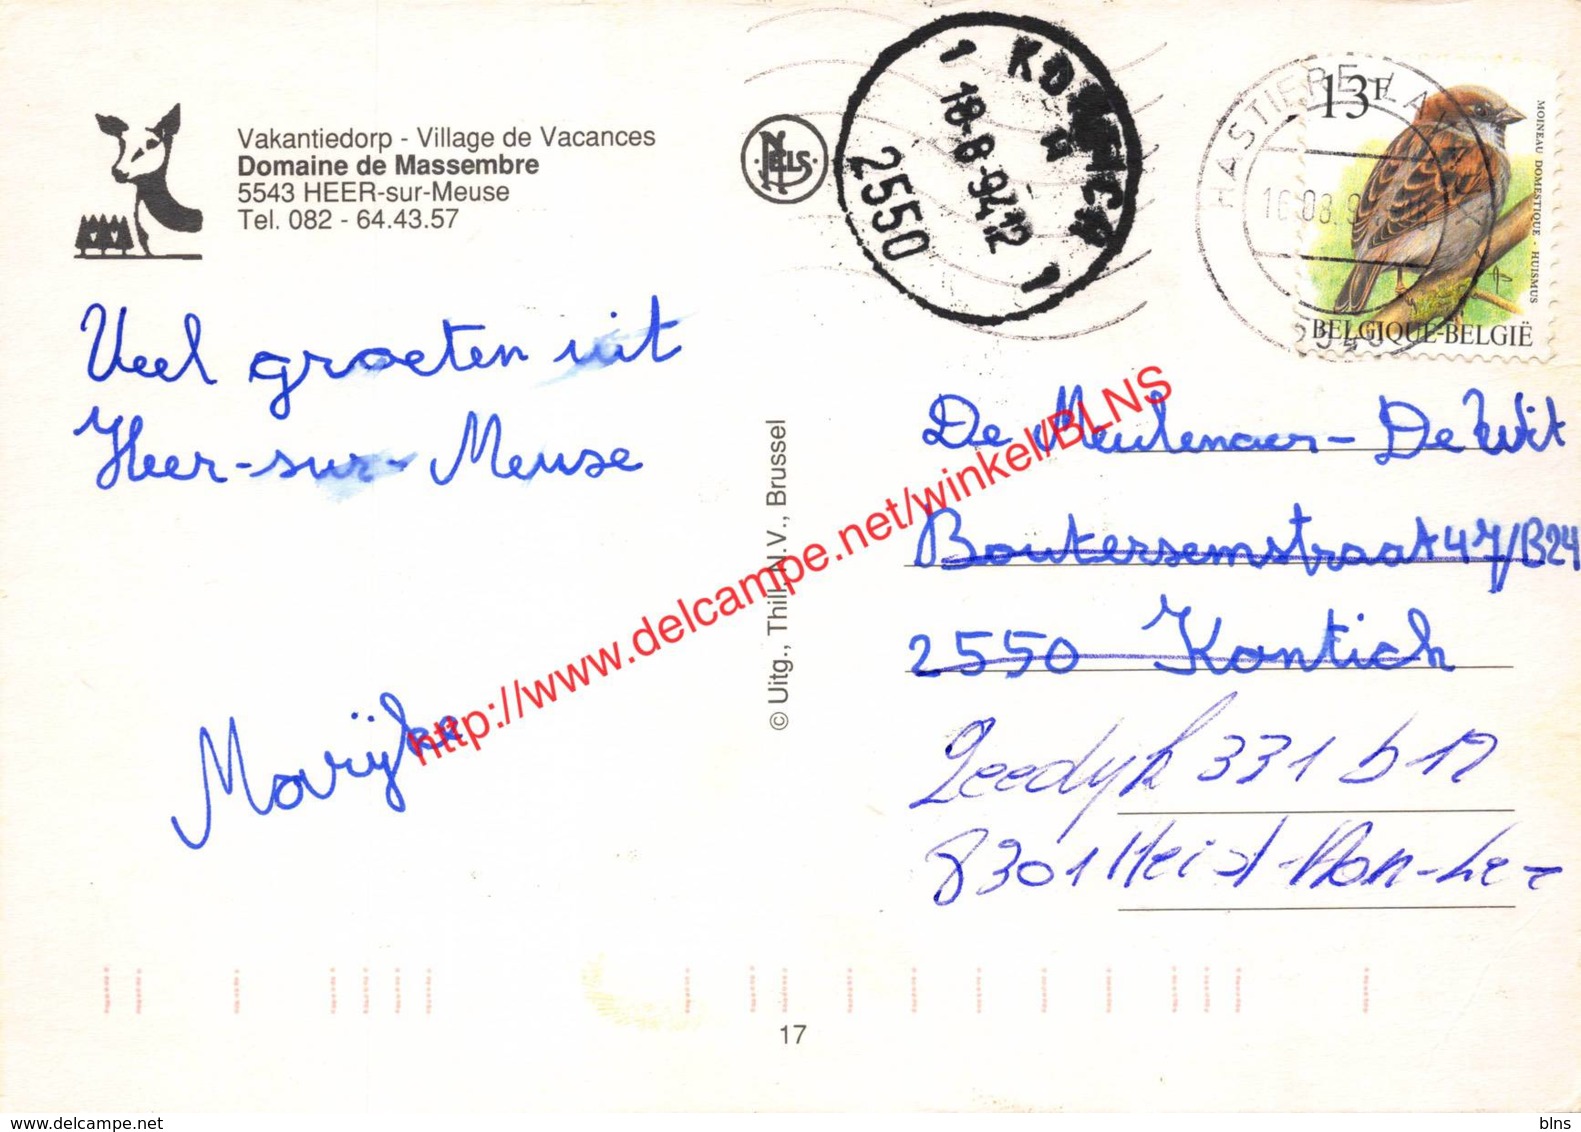 Vakantiedorp - Village de Vacances
Domaine de Massembre
5543 HEER-sur-Meuse
Tel. 082 - 64.43.57
NELS
1 KONTICH 1
18-8-94 12
2550
HASTIERE-LAV
16.08.9
13F
MOINEAU DOMESTIQUE - HUISMUS
BELGIQUE-BELGIË
Veel groeten uit
Heer-sur-Meuse
Marijke
© Uitg., Thill N.V., Brussel
De Meulenaer - De Wit
Boutersemstraat 47/B24
2550 Kontich
Zeedijk 331 b 12
8301 Heist-Aan-Zee
17
http://www.delcampe.net/winkel/BLNS
delcampe.net
blns